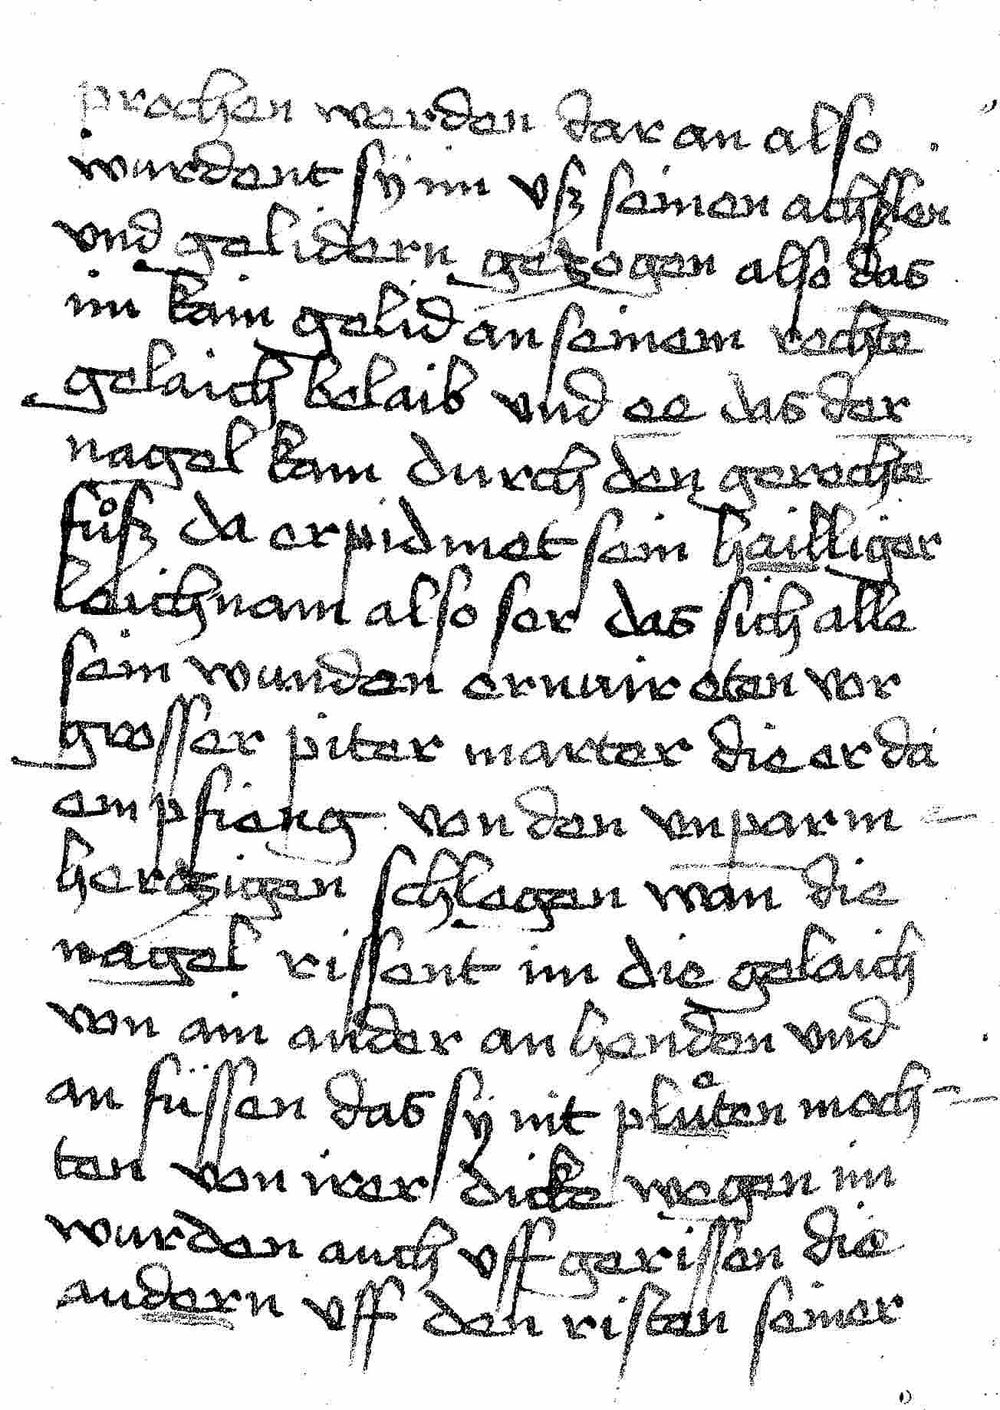 prochen werden dar an also
wurdent sÿ im vß seinen achßlen
vnd gelidern gezogen also das
im kain gelid an seinem rechte
gelaich belaib vnd ee das der
nagel kam durch den gerechte
fůß da erpidmet sein hailliger
leichnam also ser das sich alle
sein wunden ernuireten vor
grosser piter marter die er da
empfieng von den vnparm
herczigen schlegen wan die
nagel rissent im die gelaich
von ain ander an henden vnd
an füssen das sÿ nit plůten moch-
ten von irer dicke wegen im
wurden auch vff gerissen die
andern vff den risten seiner